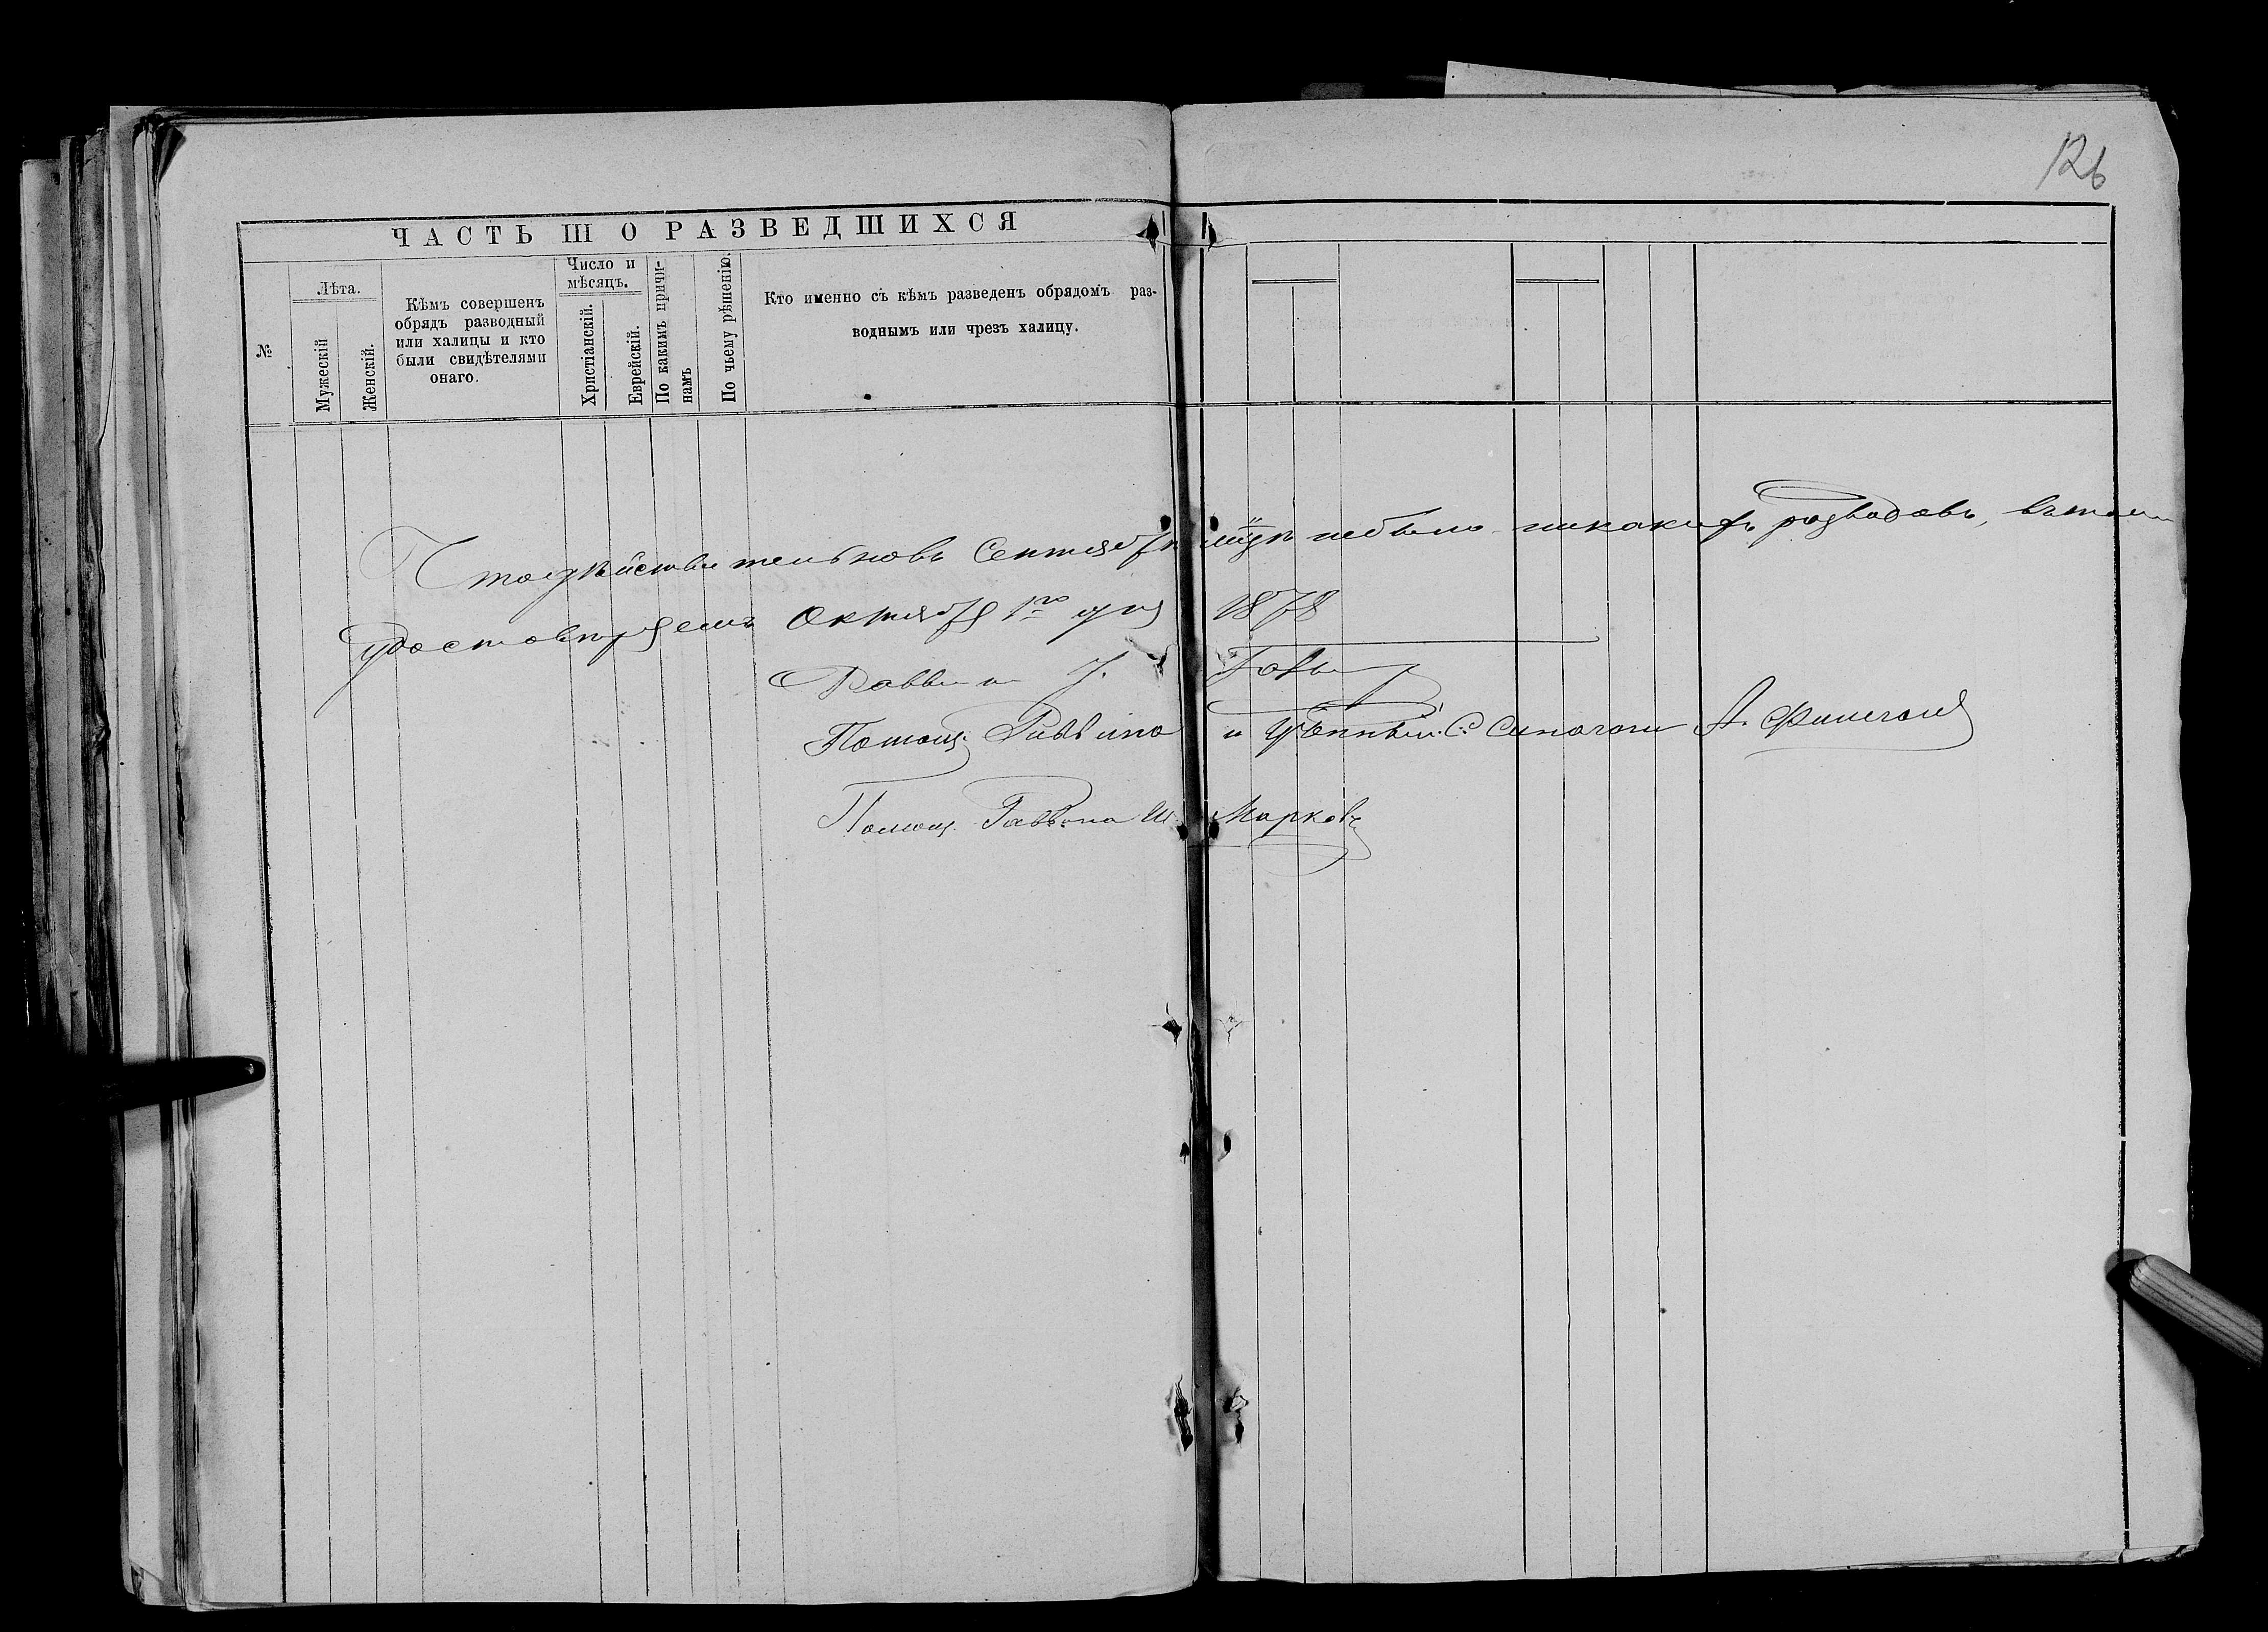 126
ЧАСТЬ III О РАЗВЕДШИХСЯ
№
Лѣта.
Мужескій
Женскій.
Кѣмъ совершенъ
обрядъ разводный
или халицы и кто
были свидѣтелями
онаго.
Число и
мѣсяцъ.
Христіанскій.
Еврейскій.
По какимъ причи-
намъ
По чьему рѣшенію.
Кто именно съ кѣмъ разведенъ обрядомъ раз-
воднымъ или чрезъ халицу.
Что дѣйствительно въ Сентябрѣ м-цѣ не было никакихъ разводовъ, въ томъ
удостовѣряемъ Октября 1го дня 1878
Раввинъ
Помощ. Раввина и С. Синагоги А.
Помощ. Раввина Ш. Марковъ